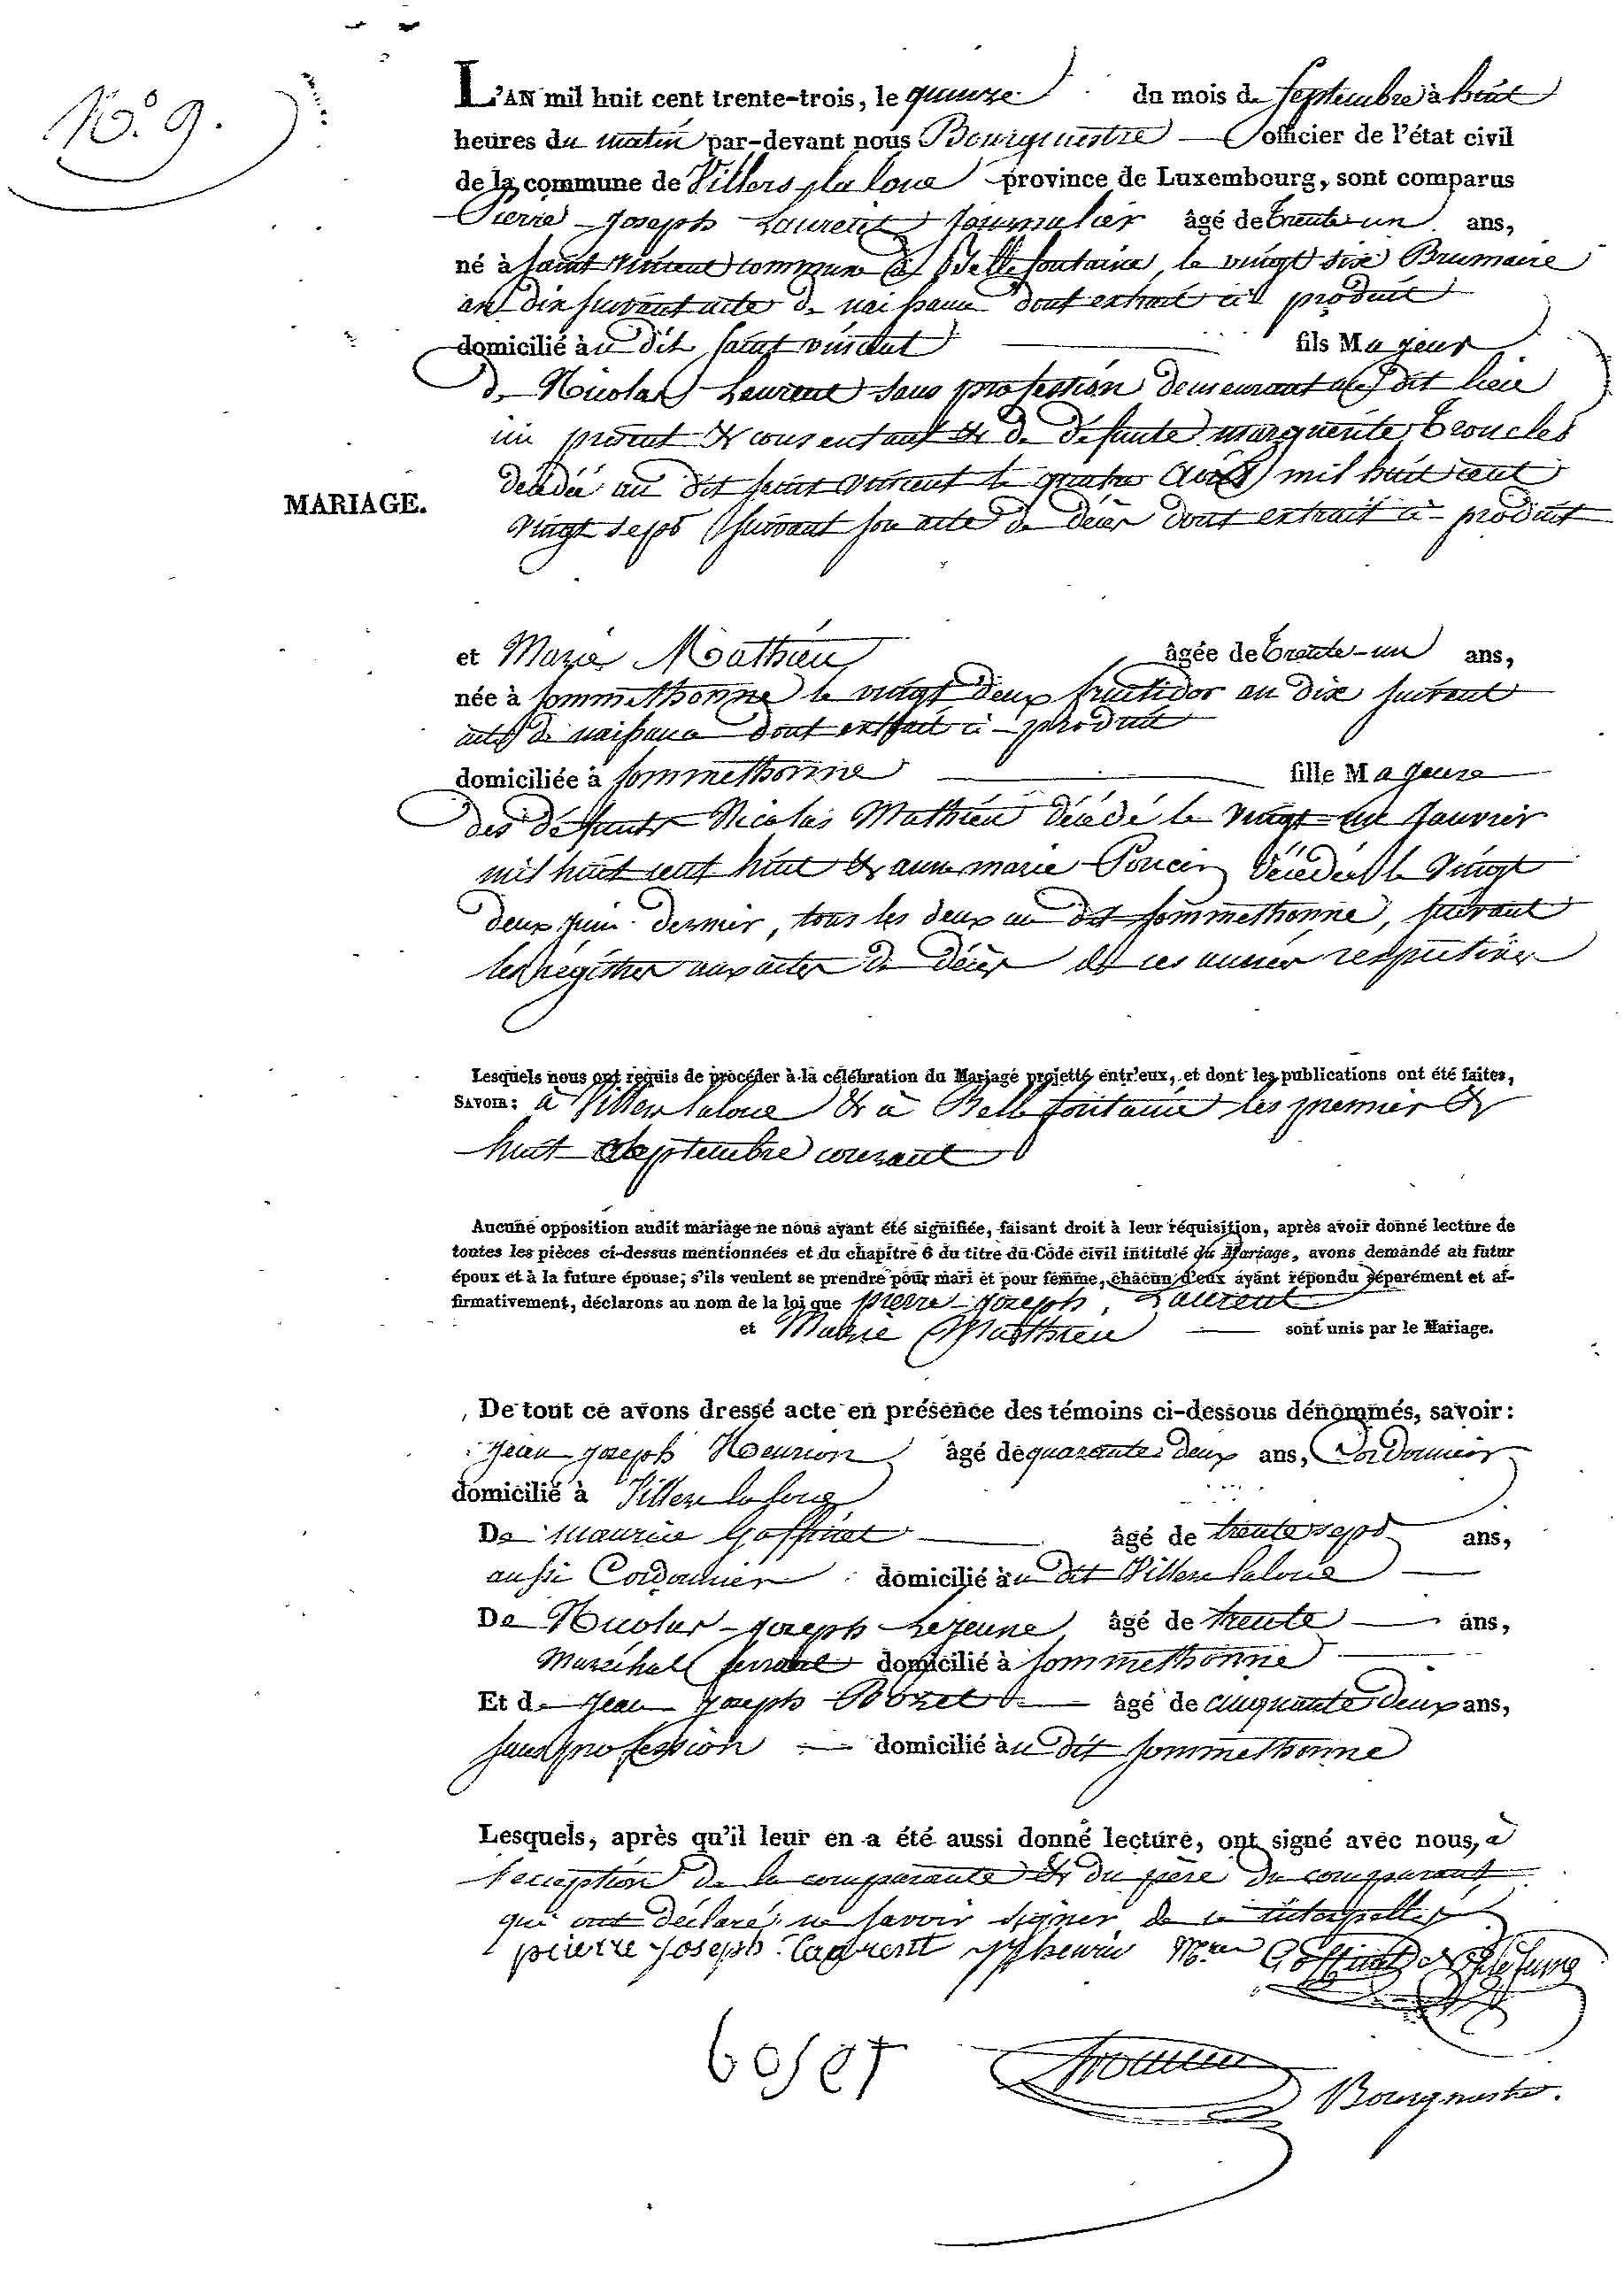 N.° 9.
L'AN mil huit cent trente-trois, le quinze du mois de Septembre à huit
heures du matin par-devant nous Bourgmestre officier de l'état civil
de la commune de Villers la loue province de Luxembourg, sont comparus
Pierre - Joseph Laurent journalier âgé de trente-un ans,
né à Saint Vincent commune de Bellefontaine, le vingt six Brumaire
an dix suivant acte de naissance dont extrait ci produit
domicilié au dit Saint vincent fils Majeur
de Nicolas Laurent sans profession demeurant au dit lieu
ici présent & consentant & de défunte marguerite
décédée au dit Saint vincent le quatre Août mil huit cent
MARIAGE.
vingt sept suivant son acte de décès dont extrait ci-produit
et Marie Mathieu âgée de trente-un ans,
née à Sommethonne le vingt deux fructidor an dix suivant
acte de naissance dont extrait ci-produit
domiciliée à Sommethonne fille Majeure
des défunts Nicolas Mathieu décédé le vingt un Janvier
mil huit cent huit & anne marie Poncin décédée le vingt
deux juin dernier, tous les deux au dit Sommethonne, suivant
les régistres aux actes de décès de ces années respectives
Lesquels nous ont requis de procéder à la célébration du Mariage projetté entr'eux, et dont les publications ont été faites,
SAVOIR : à Villers laloue & à Bellefontaine les premier &
huit Septembre courant
Aucune opposition audit mariage ne nous ayant été signifiée, faisant droit à leur réquisition, après avoir donné lecture de
toutes les pièces ci-dessus mentionnées et du chapitre 6 du titre du Code civil intitulé du Mariage, avons demandé au futur
époux et à la future épouse; s'ils veulent se prendre pour mari et pour femme, chacun d'eux ayant répondu séparément et af-
firmativement, déclarons au nom de la loi que pierre - Joseph Laurent
et Marie Matthieu sont unis par le Mariage.
De tout ce avons dressé acte en présence des témoins ci-dessous dénommés, savoir :
Jean Joseph Henrion âgé de quarante deux ans, Cordonnier
domicilié à Villers la loue
De maurice Goffinet âgé de trente sept ans,
aussi Cordonnier domicilié au dit Villers laloue
De Nicolas - Joseph Lejeune âgé de trente ans,
Maréchal ferrant domicilié à Sommethonne
Et de Jean Joseph Bozet âgé de cinquante deux ans,
sans profession domicilié au dit Sommethonne
Lesquels, après qu'il leur en a été aussi donné lecture, ont signé avec nous, à
l'exception de la comparante & du père du comparant
qui ont déclaré ne savoir signer de ce interpellés
pierre Joseph laurent Goffinet
boset Bourgmestre.